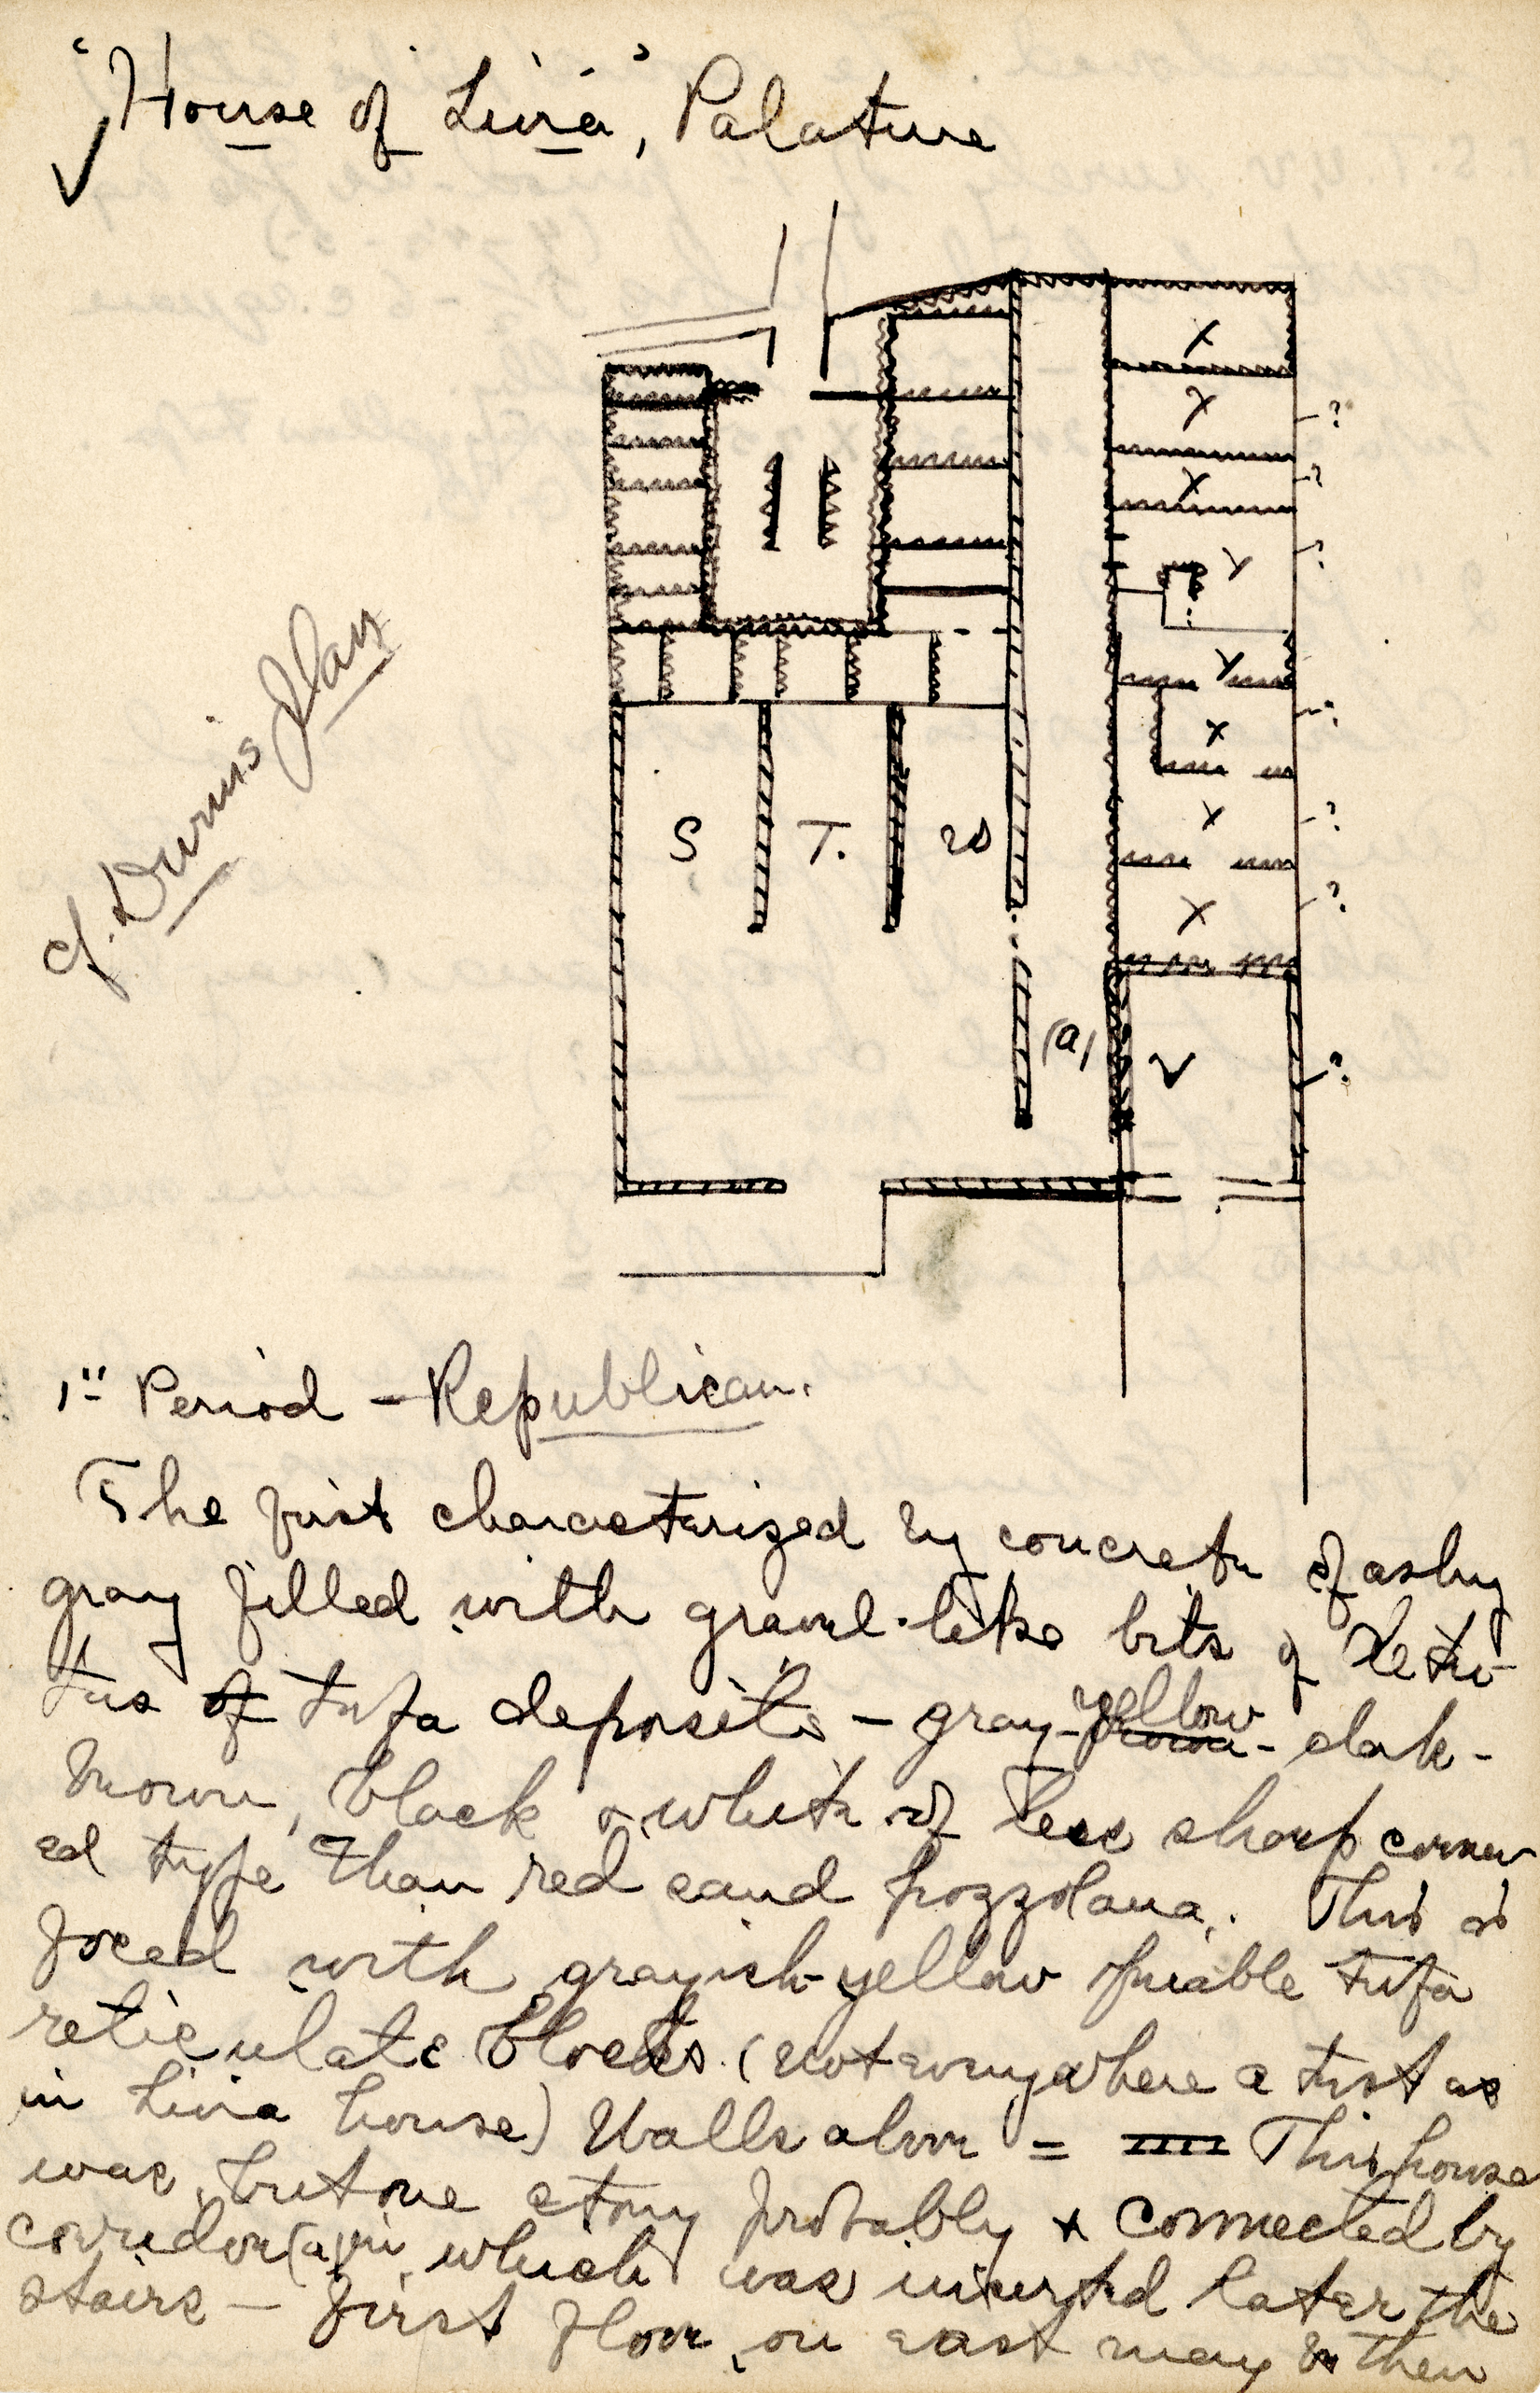 "House of Livia", Palatine
cf. Durm's plan
X
X
?
X
?
X
?
X
X
?
X
?
X
?
S
T.
(a)
V
?
1st Period – Republican.
The first characterized by concrete of ashy
gray filled with gravel-like bits of detri-
tus of tufa deposits – gray-yellow - dark-
brown, black & white of less sharp corner-
ed type than red sand pozzolana. This is
faced with grayish-yellow friable tufa
reticulate blocks (not everywhere a test as
in Livia house) Walls above = This house
was but one story probably & connected by
corridor (a) in which was inserted later the
stairs – First floor on east may be then